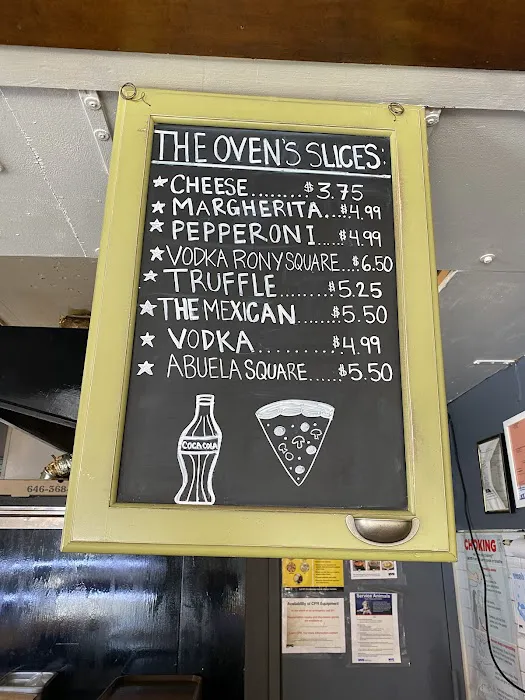 THE OVEN'S SLICES:
★ CHEESE........$3.75
★ MARGHERITA...$4.99
★ PEPPERONI.....$4.99
★ VODKA RONY SQUARE...$6.50
★ TRUFFLE.........$5.25
★ THE MEXICAN.......$5.50
★ VODKA...........$4.99
★ ABUELA SQUARE......$5.50
COCA COLA
646-568
CHOKING
Availability of CPR Equipment
Service Animals